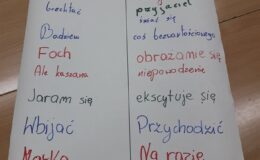 przyjaciel
śmiać się
Badziew coś bezwartościowego
Foch obrażanie się
Ale kaszana niepowodzenie
Jaram się ekscytuje się
Wbijać Przychodzić
Na razie